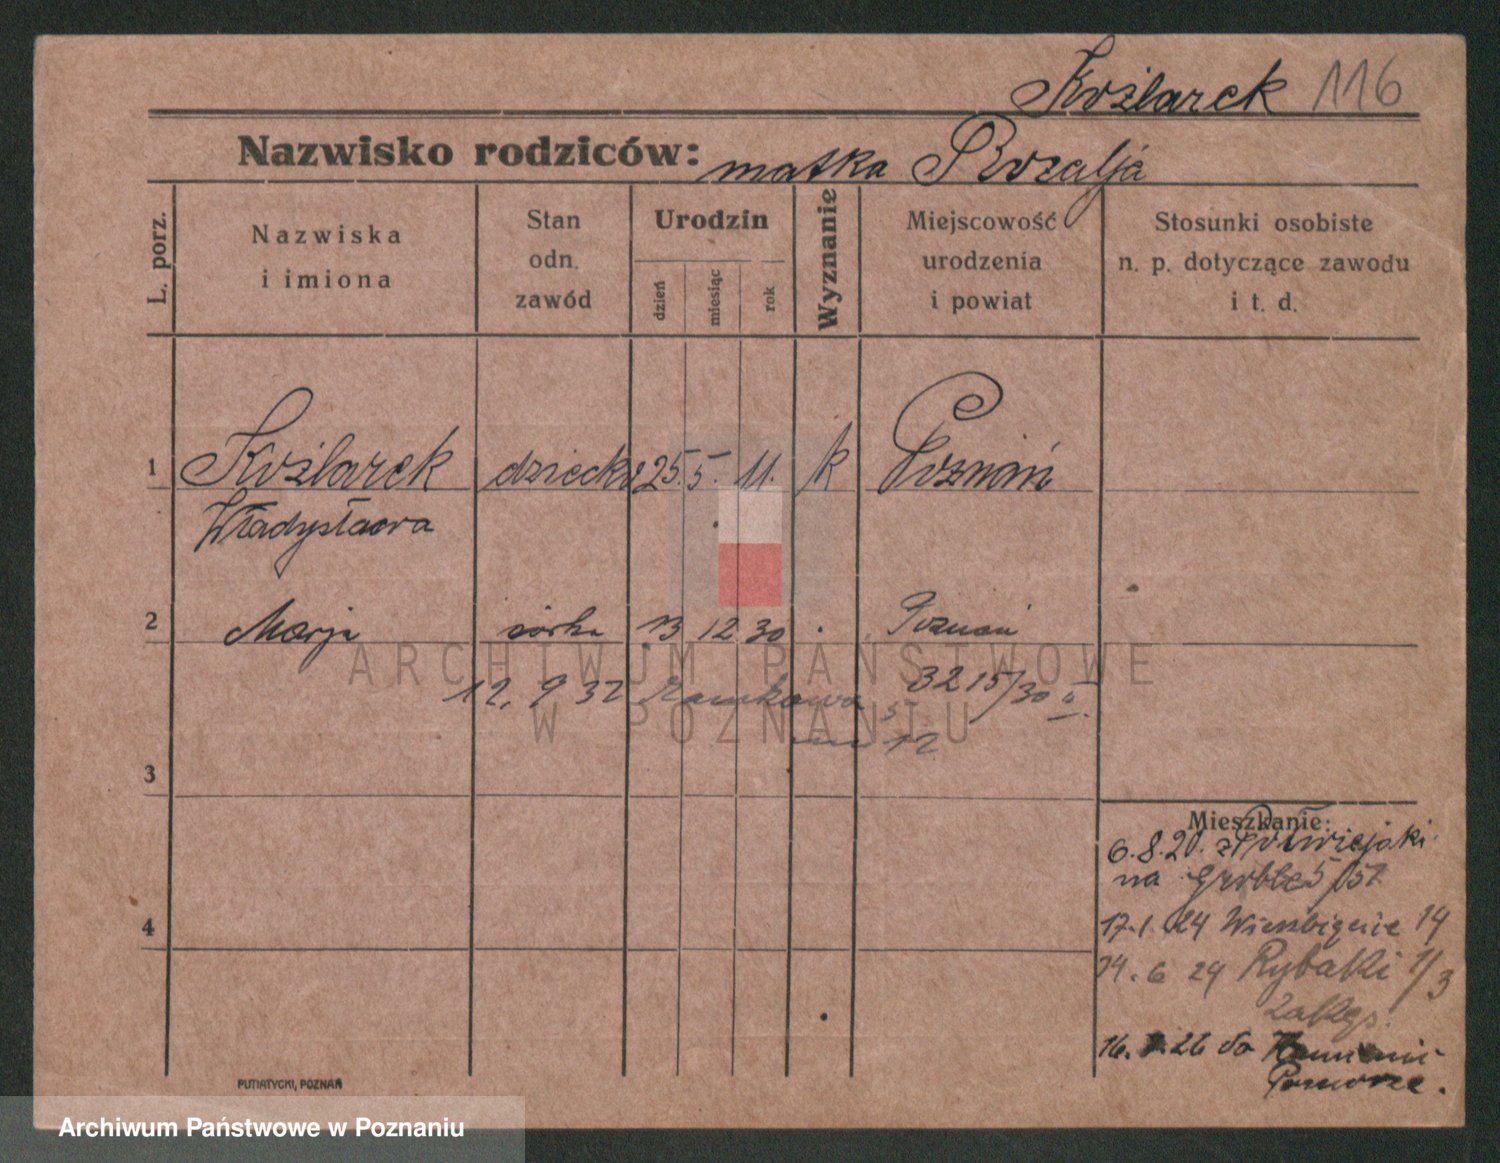 Koźlarek 116
Nazwisko rodziców: matka Rozalja
L. porz.
Nazwiska
i imiona
Stan
odn.
zawód
Urodzin
dzień
miesiąc
rok
Wyznanie
Miejscowość
urodzenia
i powiat
Stosunki osobiste
n. p. dotyczące zawodu
i t. d.
1 Koźlarek dziecko 25. 5. 11. k Poznań
Władysława
2 Marja córka 13 12 30 Poznań
ARCHIWUM PAŃSTWOWE
12. 9 32 3215/30
W POZNANIU
12
3
Mieszkanie:
6.8.20. z Półwiejski
na Groble 5
4
17.1.24 Wierzbięcice 14
14. 6 24 Rybaki 1/3
16. 26 do
Pomorze.
PUTIATYCKI, POZNAŃ
Archiwum Państwowe w Poznaniu